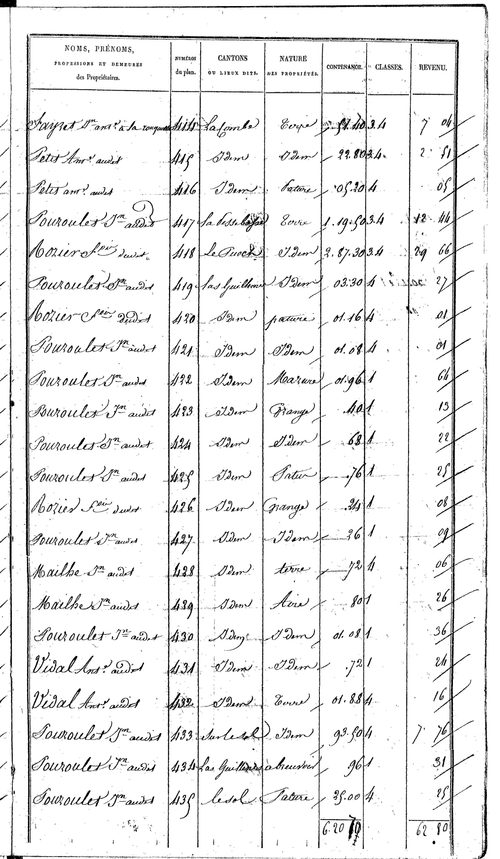 NOMS, PRÉNOMS, PROFESSIONS ET DEMEURES des Propriétaires. NUMÉROS du plan. CANTONS OU LIEUX DITS. NATURE DES PROPRIÉTÉS. CONTENANCE. CLASSES. REVENU.
Fayret Jn ant.e à la 414 Lacombe Terre 51.40 3.4 7 04
Petit Ant.e audit 415 Idem Idem 22.80 3.4 2 51
Petit ant.e audit 416 Idem Pature 05.20 4 05
Pouroulet Jn audit 417 Terre 1.19.50 3.4 12 44
Rozier dudit 418 Le Puech Idem 2.87.30 3.4 29 66
Pouroulet Jn audit 419 Las Guillmes Idem 03.30 4 27
Rozier dudit 420 Idem pature 01.16 4 01
Pouroulet Jn audit 421 Idem Idem 01.08 4 01
Pouroulet Jn audit 422 Idem Mazure 01.96 1 64
Pouroulet Jn audit 423 Idem Grange 40 1 13
Pouroulet Jn audit 424 Idem Idem 68 1 22
Pouroulet Jn audit 425 Idem Patus 76 1 25
Rozier dudit 426 Idem Grange 24 1 08
Pouroulet Jn audit 427 Idem Idem 26 1 09
Mailhe Jn audit 428 Idem terre 72 4 06
Mailhe Jn audit 429 Idem Aire 80 1 26
Pouroulet Jn audit 430 Idem Idem 01.08 1 36
Vidal Ant.e audit 431 Idem Idem 72 1 24
Vidal Ant.e audit 432 Idem Terre 01.88 4 16
Pouroulet Jn audit 433 Sur le sol Idem 93.50 4 7 76
Pouroulet Jn audit 434 Las Guillmes abreuvoir 96 1 31
Pouroulet Jn audit 435 le sol Pature 25.00 4 25
6.20 70 62 80